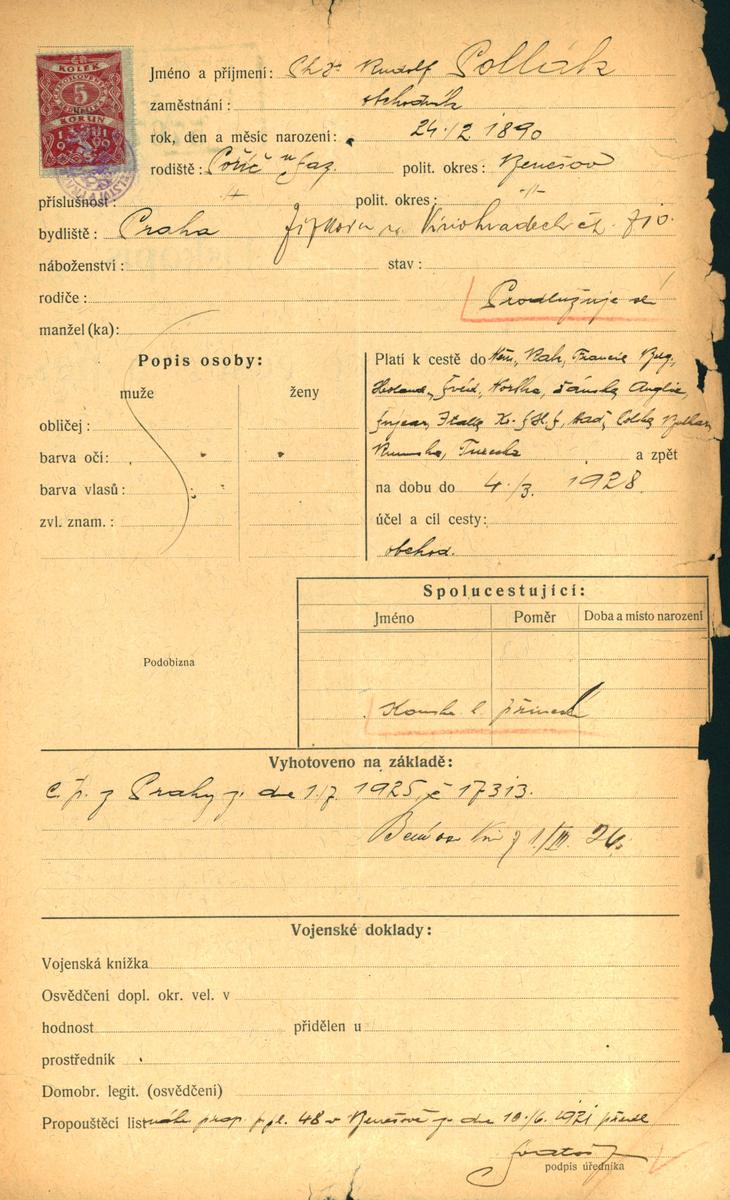 KOLEK
5
KORUN
Jméno a příjmení: Rudolf Pollák
zaměstnání: obchodník
rok, den a měsíc narození: 24./2. 1890
rodiště: Poříč n/Saz. polit. okres: Benešov
příslušnost: -//- polit. okres: -//-
bydliště: Praha Vinohradech čp. 710.
náboženství: stav:
rodiče: Prodlužuje se
manžel (ka):
Popis osoby:
muže ženy
obličej:
barva očí:
barva vlasů:
zvl. znam.:
Platí k cestě do Něm., Rak, Francie, Belg,
Holand., Švéd, Norska, Dánska, Anglie,
Švýcar, Italie, K. S. H. S., Maď, Polska, Bulhar,
Rumska, Turecka a zpět
na dobu do 4./3. 1928
účel a cíl cesty:
obchod.
Spolucestující:
Jméno Poměr Doba a místo narození
Podobizna
Vyhotoveno na základě:
c. p. z Prahy z. dne 1./7. 1925, č 17313.
1./III. 26.
Vojenské doklady:
Vojenská knížka
Osvědčení dopl. okr. vel. v
hodnost přidělen u
prostředník
Domobr. legit. (osvědčení)
Propouštěcí list prop. p. pl. 48 v Benešově z. dne 10./6. 1921
podpis úředníka